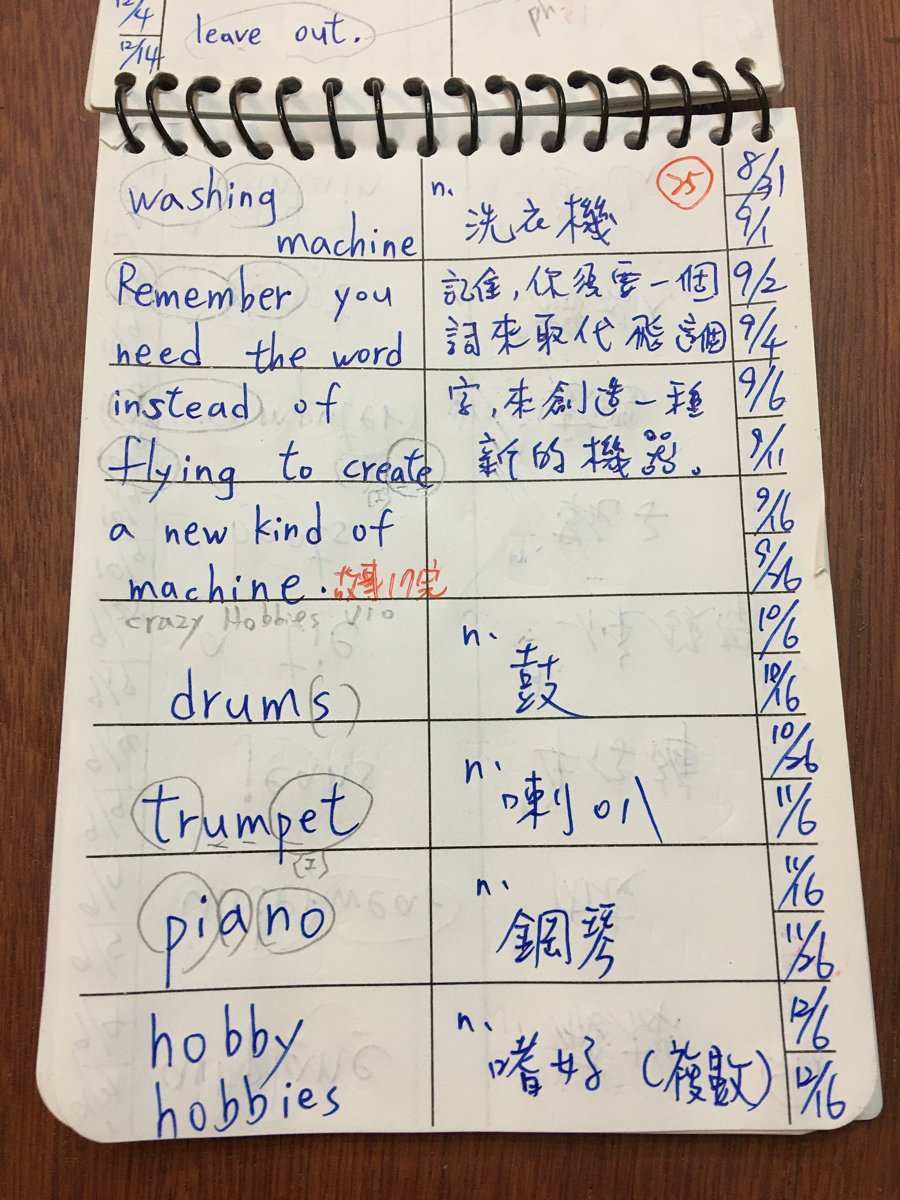 12/4
12/14
leave out.
washing
machine
n.
洗衣機
25
8/31
9/1
Remember you
need the word
instead of
flying to create
[I]
a new kind of
machine.
故事17完
記住,你須要一個
詞來取代飛這個
字,來創造一種
新的機器。
9/2
9/4
9/6
9/11
9/16
9/26
crazy Hobbies V10
drum(s)
n.
鼓
10/6
10/16
trumpet
[I]
n.
喇叭
10/26
11/6
piano
n.
鋼琴
11/16
11/26
hobby
hobbies
n.
嗜好(複數)
12/6
12/16